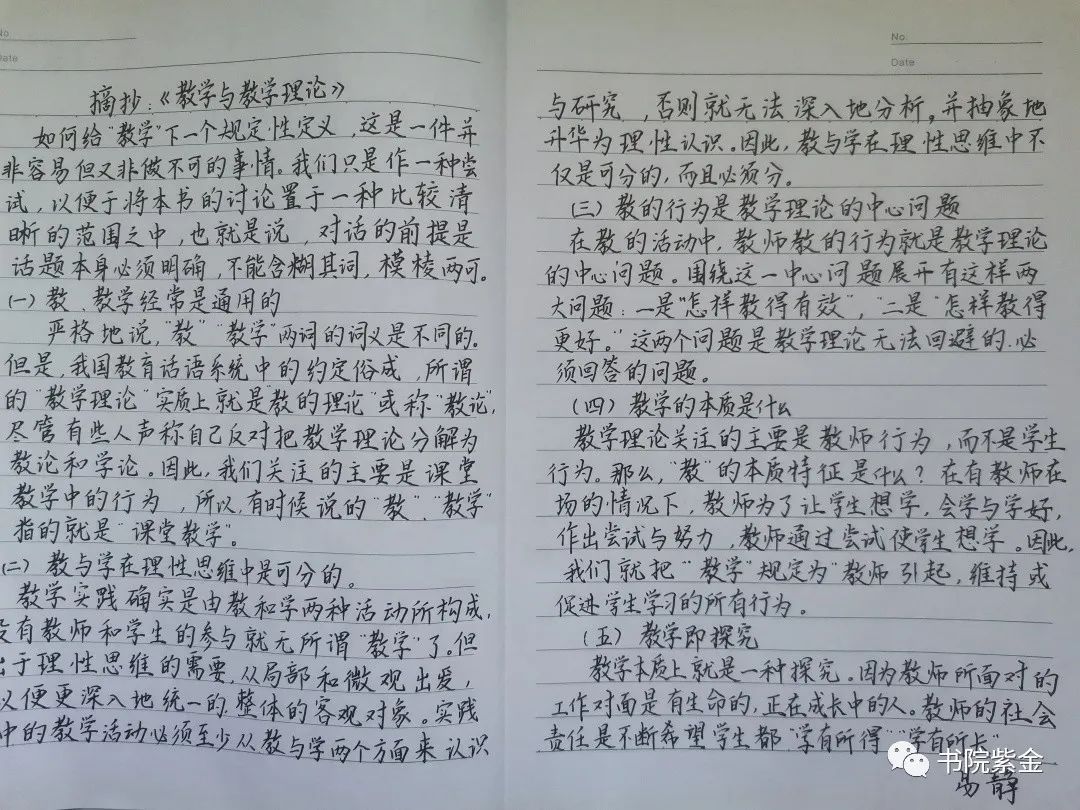 No
Date
摘抄:《教学与教学理论》
如何给"教学"下一个规定性定义,这是一件并
非容易但又非做不可的事情。我们只是作一种尝
试,以便于将本书的讨论置于一种比较清
晰的范围之中,也就是说,对话的前提是
话题本身必须明确,不能含糊其词,模棱两可。
(一)教、教学经常是通用的
严格地说,"教""教学"两词的词义是不同的。
但是,我国教育话语系统中的约定俗成,所谓
的"教学理论"实质上就是"教的理论"或称"教论",
尽管有些人声称自己反对把教学理论分解为
教论和学论。因此,我们关注的主要是课堂
教学中的行为,所以,有时候说的"教"、"教学"
指的就是"课堂教学"。
(二)教与学在理性思维中是可分的。
教学实践确实是由教和学两种活动所构成,
没有教师和学生的参与就无所谓"教学"了。但
出于理性思维的需要,从局部和微观出发,
以便更深入地统一的,整体的客观对象。实践
中的教学活动必须至少从教与学两个方面来认识
No.
Date
与研究,否则就无法深入地分析,并抽象地
升华为理性认识。因此,教与学在理性思维中不
仅是可分的,而且必须分。
(三)教的行为是教学理论的中心问题
在教的活动中,教师教的行为就是教学理论
的中心问题。围绕这一中心问题展开有这样两
大问题:一是"怎样教得有效","二是"怎样教得
更好。"这两个问题是教学理论无法回避的.必
须回答的问题。
(四)教学的本质是什么
教学理论关注的主要是教师行为,而不是学生
行为。那么,"教"的本质特征是什么?在有教师在
场的情况下,教师为了让学生想学,会学与学好,
作出尝试与努力,教师通过尝试使学生想学。因此,
我们就把"教学"规定为"教师引起,维持或
促进学生学习的所有行为。
(五)教学即探究
教学本质上就是一种探究。因为教师所面对的
工作对面是有生命的,正在成长中的人。教师的社会
责任是不断希望学生都"学有所得""学有所长"
易静
书院紫金